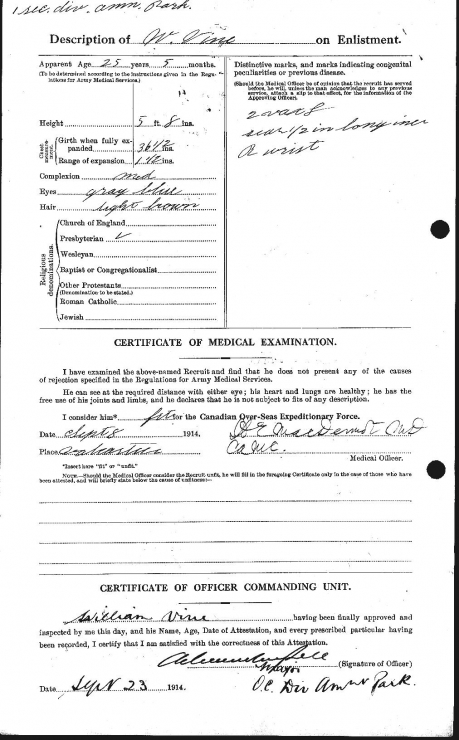 1 sec. div. amn. Park.
Description of W. Vine on Enlistment.
Apparent Age 25 years 5 months.
(To be determined according to the instructions given in the Regulations for Army Medical Services.)
Height 5 ft. 8 ins.
Chest measurement.
Girth when fully expanded 36 1/2 ins.
Range of expansion 1 1/2 ins.
Complexion med
Eyes gray blue
Hair light brown
Religious denominations.
Church of England
Presbyterian ✓
Wesleyan
Baptist or Congregationalist
Other Protestants
(Denomination to be stated.)
Roman Catholic
Jewish
Distinctive marks, and marks indicating congenital
peculiarities or previous disease.
(Should the Medical Officer be of opinion that the recruit has served
before, he will, unless the man acknowledges to any previous
service, attach a slip to that effect, for the information of the
Approving Officer.)
2 vacs
scar 1/2 in long inner
wrist
CERTIFICATE OF MEDICAL EXAMINATION.
I have examined the above-named Recruit and find that he does not present any of the causes
of rejection specified in the Regulations for Army Medical Services.
He can see at the required distance with either eye; his heart and lungs are healthy; he has the
free use of his joints and limbs, and he declares that he is not subject to fits of any description.
I consider him* fit for the Canadian Over-Seas Expeditionary Force.
Date Sept 8 1914.
Place Valcartier
Medical Officer.
*Insert here "fit" or "unfit."
NOTE.—Should the Medical Officer consider the Recruit unfit, he will fill in the foregoing Certificate only in the case of those who have
been attested, and will briefly state below the cause of unfitness:—
CERTIFICATE OF OFFICER COMMANDING UNIT.
William Vine having been finally approved and
inspected by me this day, and his Name, Age, Date of Attestation, and every prescribed particular having
been recorded, I certify that I am satisfied with the correctness of this Attestation.
(Signature of Officer)
Major
Date Sept 23 1914.
O.C. Div Amn Park.